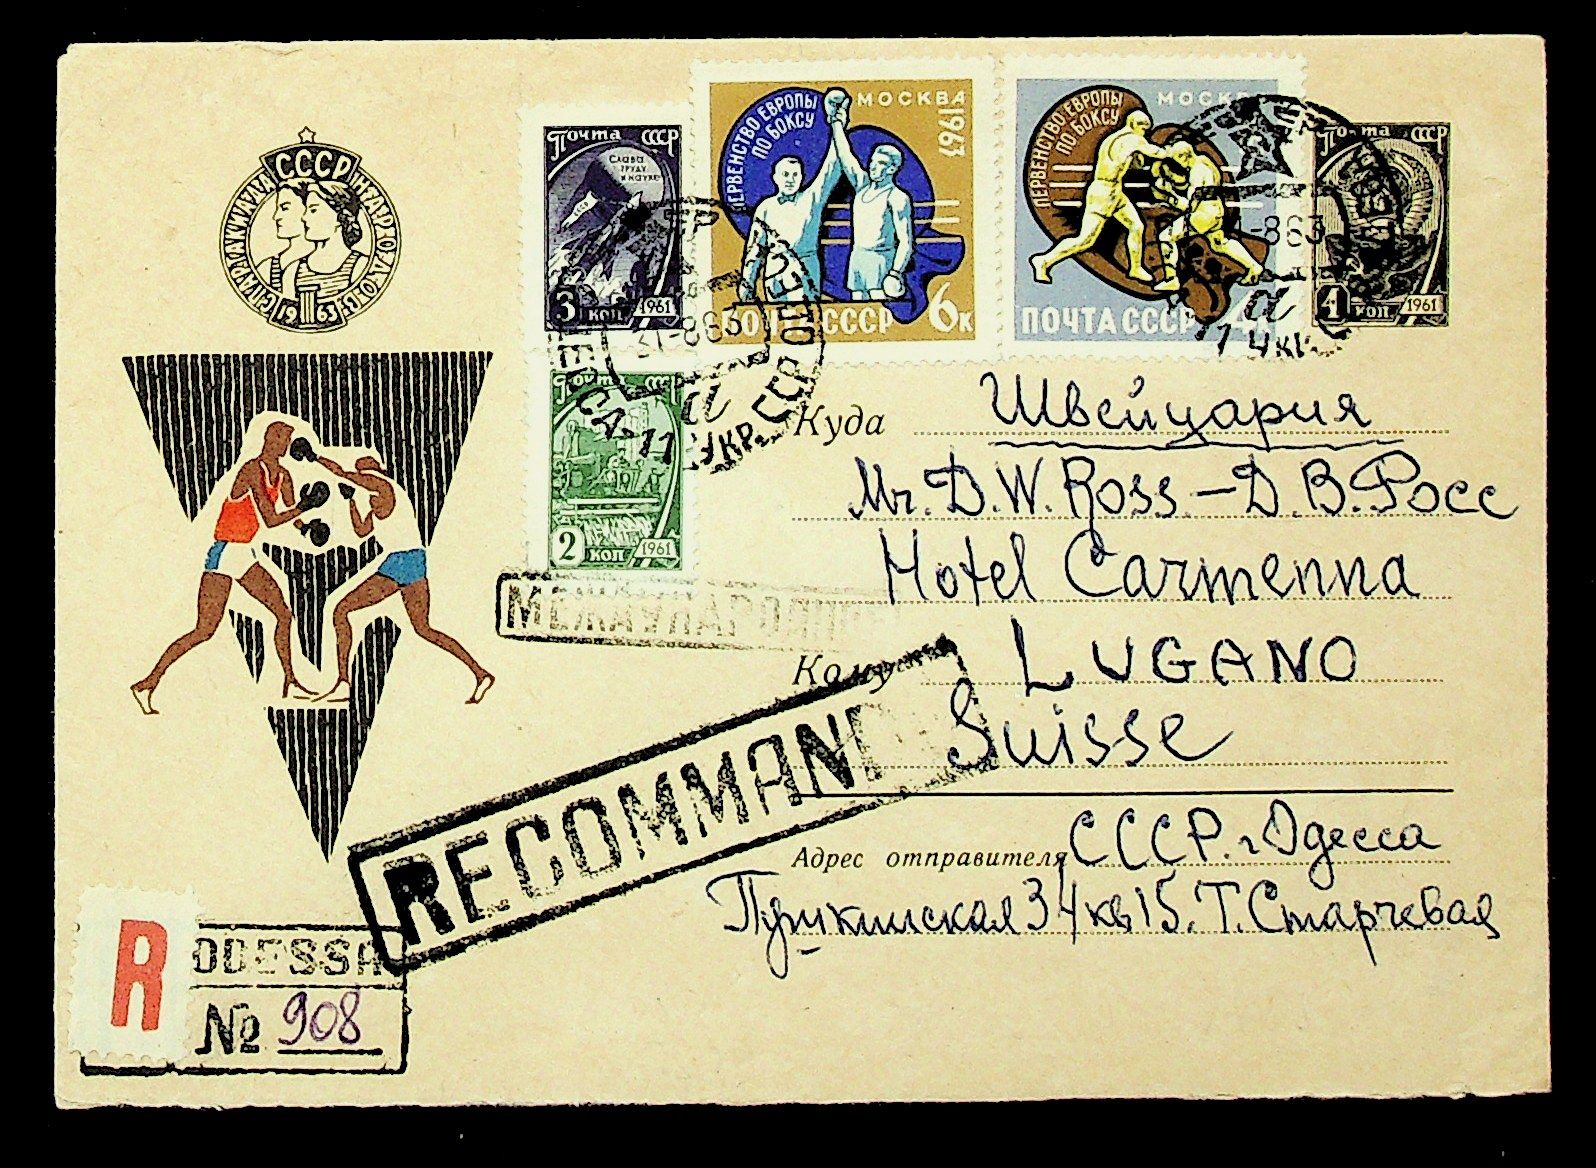 СССР
СПАРТАКИАДА НАРОДОВ
19 III 63
ПОЧТА СССР
СЛАВА
ТРУДУ
И НАУКЕ
3 КОП 1961
ПЕРВЕНСТВО ЕВРОПЫ
ПО БОКСУ
МОСКВА
1963
ПОЧТА СССР 6К
ПЕРВЕНСТВО ЕВРОПЫ
ПО БОКСУ
МОСКВА
ПОЧТА СССР 4К
Почта СССР
4 коп 1961
31-863
а
ОДЕССА-11 УКР. ССР
-863
а
11 УКР
Почта СССР
2 КОП 1961
Куда Швейцария
Mr. D. W. Ross – Д. В. Росс
Hotel Carmenna
Кому LUGANO
Suisse
RECOMMAN
Адрес отправителя СССР. г Одесса
Пушкинская 34 кв 15. Т. Старчевая
R ODESSA
№ 908